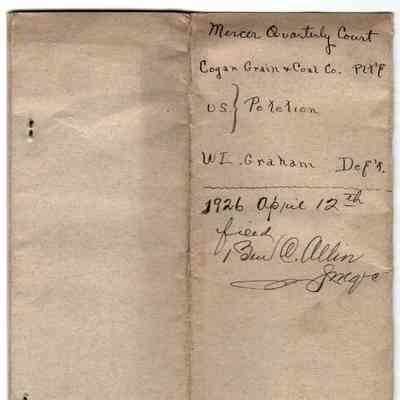 Mercer Quarterly Court
Cogan Grain & Coal Co. Plt'f
vs } Petetion
W L. Graham Def's.
1926 April 12th
filed
Ben C. Allin